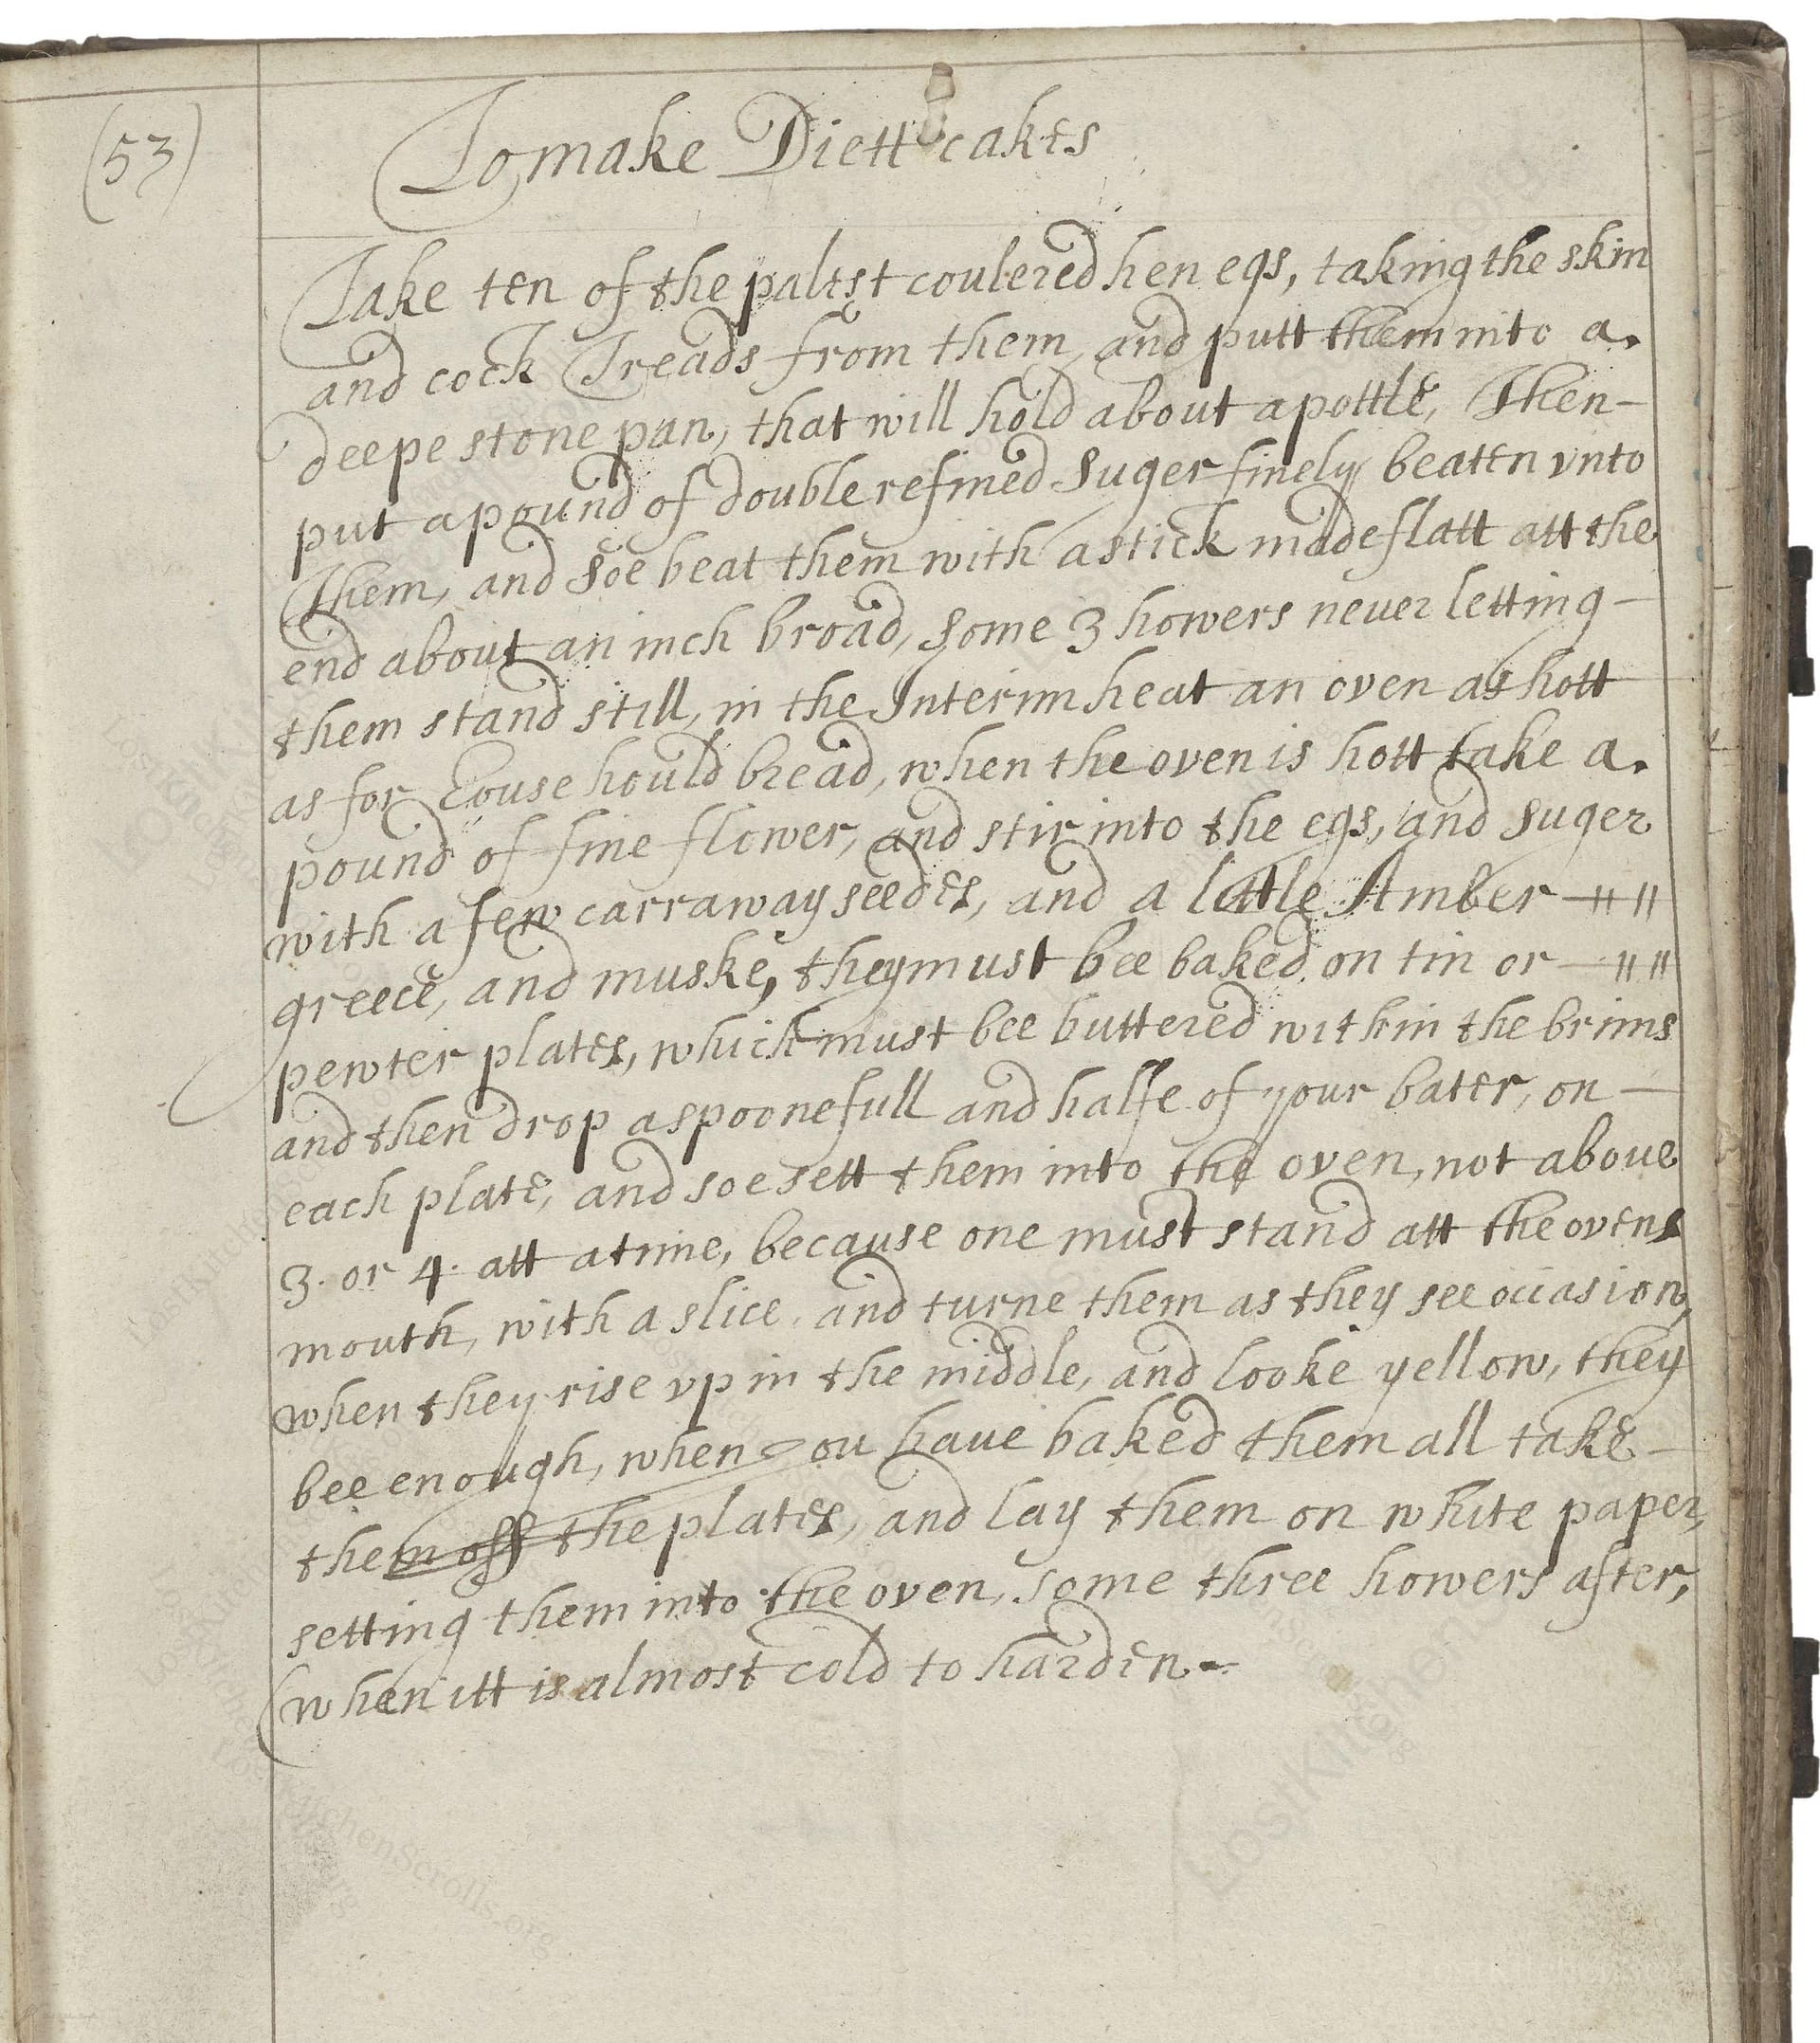 (53)
To make Diett cakes
Take ten of the palest coulered hen egs, taking the skin
and cock Treads from them, and putt them into a.
deepe stone pan, that will hold about a pottle, Then-
put a pound of double refined Suger finely beaten vnto
Them, and Soe beat them with a stick made flatt att the
end about an inch broad, Some 3 howers neuer letting-
them stand still, in the Interim heat an oven as hott
as for house hould bread, when the oven is hott take a.
pound of fine flower, and stir into the egs, and Suger
with a few carraway seedes, and a little Amber
greece, and muske, they must bee baked on tin or
pewter plates, which must bee buttered within the brims
and then drop a spoonefull and halfe of your bater, on-
each plate, and soe sett them into the oven, not aboue
3. or 4. att a time, because one must stand att the ovens
mouth, with a slice, and turne them as they see occasion,
when they rise vp in the middle, and looke yellow, they
bee enough, when you haue baked them all take-
them off the plates, and lay them on white paper,
setting them into the oven, some three howers after,
when itt is almost cold to harden-